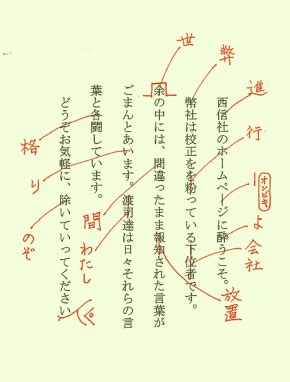 西信社のホームページに酔うこそ。
幣社は校正をを粉っている下位者です。
余の中には、間違ったまま報知された言葉が
ごまんとあいます。渡司達は日々それらの言
葉と各闘しています。
どうぞお気軽に、除いていってください
進
弊
世
行
オンビキ
よ
会社
放置
格
り
間
わたし
のぞ